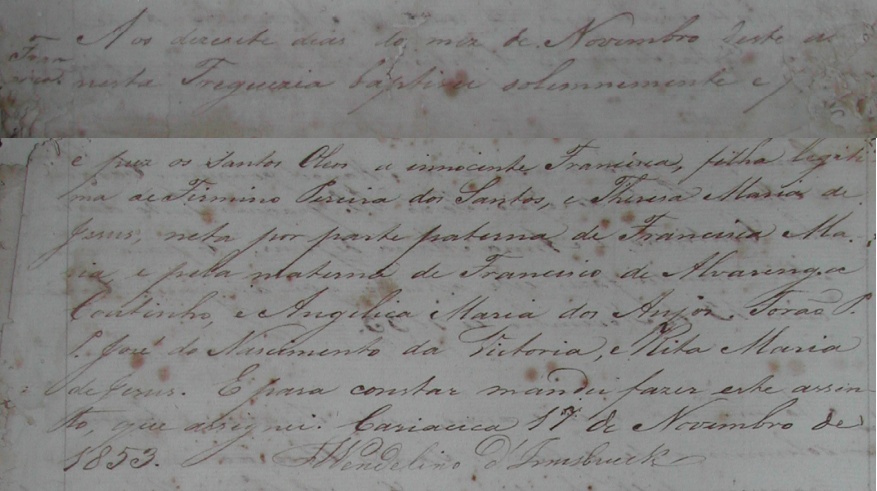 Aos dezaete dias do mez de Novembro deste an
Fran
cisca
nesta Freguezia baptizei solemnemente e p
e puz os Santos Oleos a innocente Francisca, filha legiti
ma de Firmino Pereira dos Santos, e Thereza Maria de
Jesus, neta por parte paterna de Francisca Ma-
ria e pela materna de Francisco de Alvarenga
Coutinho, e Angelica Maria dos Anjos. Forão P.
P. José do Nascimento da Victoria, e Rita Maria
de Jesus. E para constar mandei fazer este assen-
to, que assignei. Cariacica 17 de Novembro de
1853. Fr Wendelino d'Innsbruck